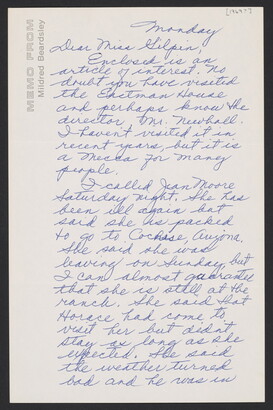 [1969?]
MEMO FROM
Mildred Beardsley
Monday
Dear Miss Gilpin,
Enclosed is an
article of interest. No
doubt you have visited
the Eastman House
and perhaps know the
director, Mr. Newhall.
I haven't visited it in
recent years, but it is
a Mecca for many
people.
I called Jean Moore
Saturday night. She has
been ill again but
said she is packed
to go to Cochise, Arizona.
She said she was
leaving on Sunday, but
I can almost guarantee
that she is still at the
ranch. She said that
Horace had come to
visit her but didn't
stay as long as she
expected. She said
the weather turned
bad and he was in